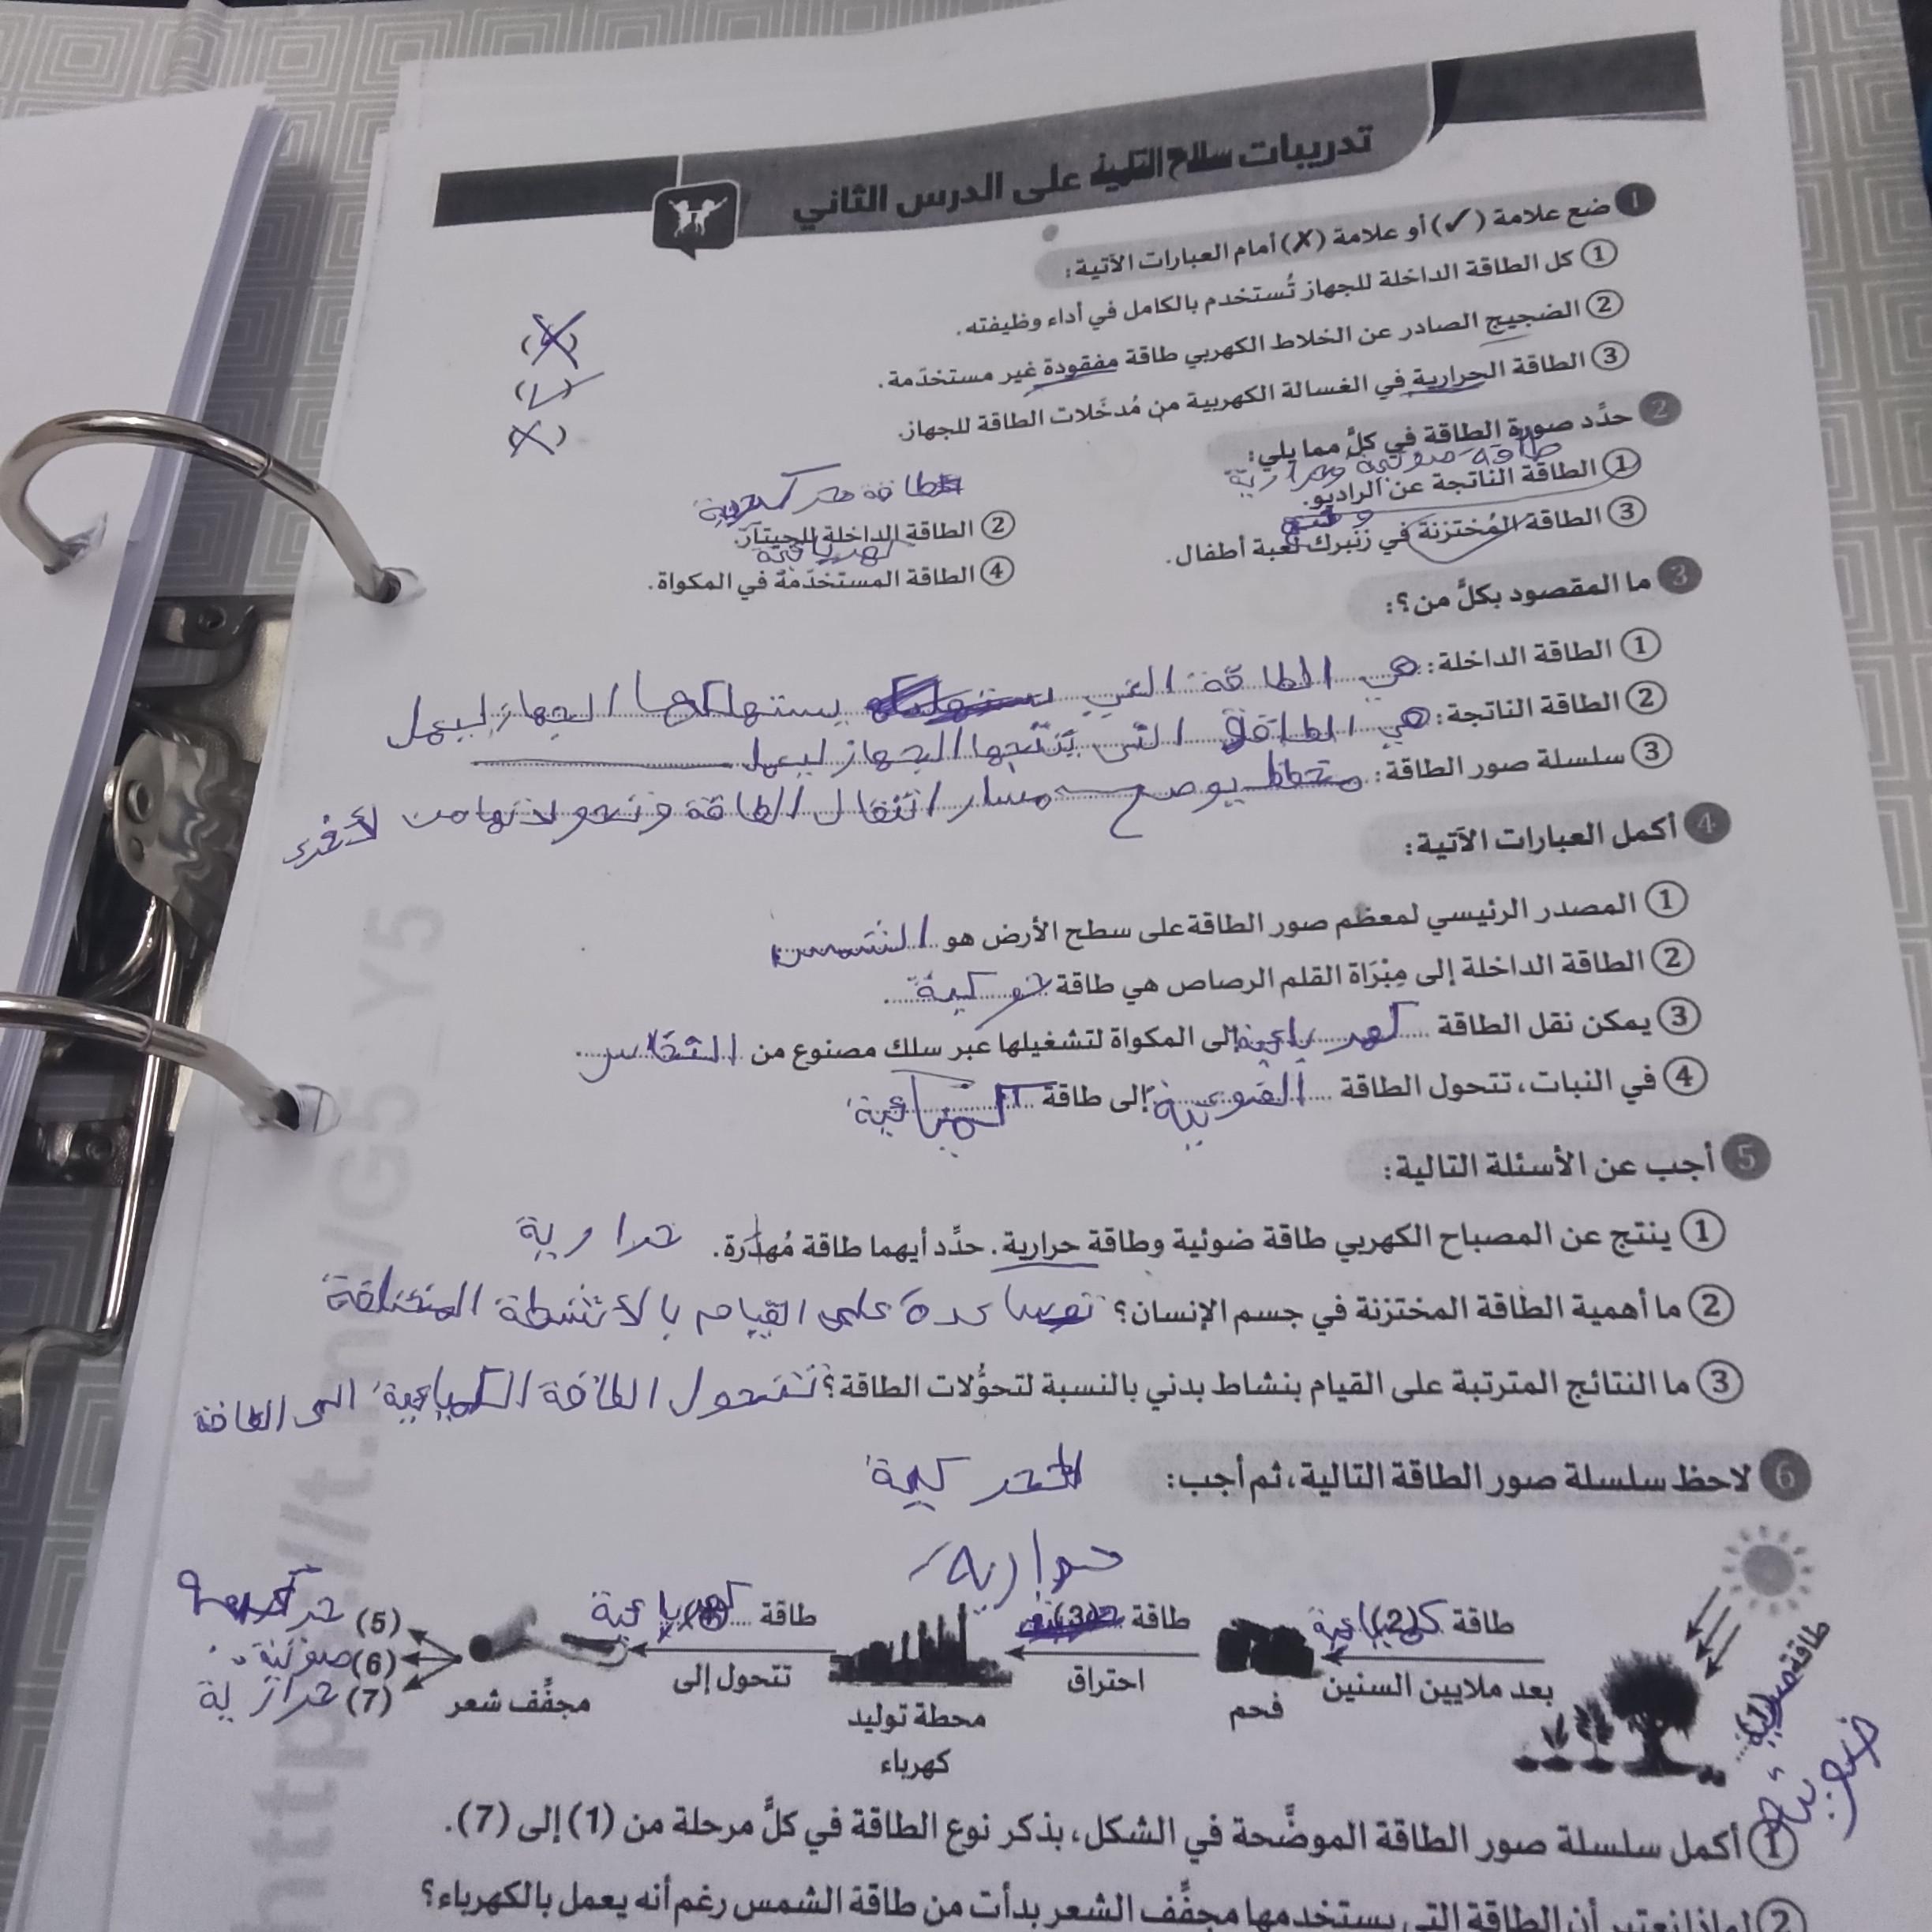 تدريبات سلاح التلميذ على الدرس الثاني
1 ضع علامة (✓) أو علامة (✗) أمام العبارات الآتية:
① كل الطاقة الداخلة للجهاز تُستخدم بالكامل في أداء وظيفته. (X)
② الضجيج الصادر عن الخلاط الكهربي طاقة مفقودة غير مستخدَمة. (✓)
③ الطاقة الحرارية في الغسالة الكهربية من مُدخَلات الطاقة للجهاز. (X)
2 حدِّد صورة الطاقة في كلٍّ مما يلي:
طاقة صوتية وحرارية
① الطاقة الناتجة عن الراديو.
طاقة حركية
② الطاقة الداخلة للجيتار.
③ الطاقة المُختزنة في زنبرك لعبة أطفال.
كهربائية
④ الطاقة المستخدَمة في المكواة.
3 ما المقصود بكلٍّ من؟:
① الطاقة الداخلة: هي الطاقة التي يستهلكها الجهاز ليعمل
② الطاقة الناتجة: هي الطاقة التى ينتجها الجهاز ليعمل
③ سلسلة صور الطاقة: مخطط يوضح مسار انتقال الطاقة وتحولاتها من لأخرى
4 أكمل العبارات الآتية:
① المصدر الرئيسي لمعظم صور الطاقة على سطح الأرض هو الشمس
② الطاقة الداخلة إلى مِبْرَاة القلم الرصاص هي طاقة حركية.
③ يمكن نقل الطاقة كهربائية إلى المكواة لتشغيلها عبر سلك مصنوع من
④ في النبات، تتحول الطاقة الضوئية إلى طاقة كيميائية
5 أجب عن الأسئلة التالية:
① ينتج عن المصباح الكهربي طاقة ضوئية وطاقة حرارية. حدِّد أيهما طاقة مُهدَرة. حرارية
② ما أهمية الطاقة المختزنة في جسم الإنسان؟ على القيام بالأنشطة المختلفة
③ ما النتائج المترتبة على القيام بنشاط بدني بالنسبة لتحوُّلات الطاقة؟ تتحول الطاقة الكيميائية الى الطاقة
الحركية
6 لاحظ سلسلة صور الطاقة التالية، ثم أجب:
طاقة (1) ضوئية
طاقة (2) كيميائية
بعد ملايين السنين
فحم
حرارية
طاقة (3)
احتراق
محطة توليد
كهرباء
طاقة (4) كهربائية
تتحول إلى
مجفِّف شعر
(5) حركية
(6) صوتية
(7) حرارية
① أكمل سلسلة صور الطاقة الموضَّحة في الشكل، بذكر نوع الطاقة في كلِّ مرحلة من (1) إلى (7).
② لماذا نعتبر أن الطاقة التي يستخدمها مجفِّف الشعر بدأت من طاقة الشمس رغم أنه يعمل بالكهرباء؟
https://t.me/G5_Y5